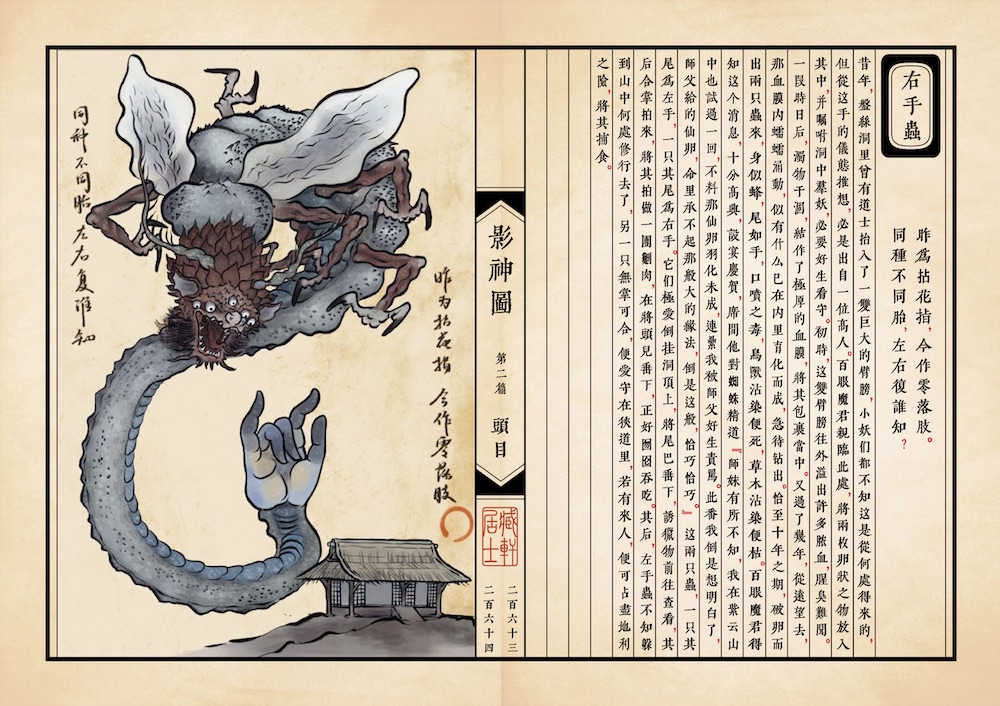 右手蟲
昨爲拈花指，今作零落肢。
同種不同胎，左右復誰知？
昔年，盤絲洞里曾有道士抬入了一雙巨大的臂膀，小妖们都不知这是從何處得來的，
但從这手的儀態推想，必是出自一位高人。百眼魔君親臨此處，將兩枚卵狀之物放入
其中，并囑咐洞中羣妖，必要好生看守。初時，这雙臂膀往外溢出許多膿血，腥臭難聞。
一叚時日后，濁物干涸，結作了極厚的血膜，將其包裹當中。又過了幾年，從遠望去，
那血膜内蠕蠕涌動，似有什么已在内里育化而成，急待钻出。恰至十年之期，破卵而
出兩只蟲來，身似蜂，尾如手，口噴之毒，鳥獸沾染便死，草木沾染便枯。百眼魔君得
知这个消息，十分高興，設宴慶賀，席間他對蜘蛛精道：『師妹有所不知，我在紫云山
中也試過一回，不料那仙卵羽化未成，連纍我被師父好生責罵。此番我倒是想明白了，
師父給的仙卵，命里承不起那般大的緣法，倒是这般，恰巧恰巧。』这兩只蟲，一只其
尾爲左手，一只其尾爲右手。它们極愛倒挂洞頂上，將尾巴垂下，誘獵物前往查看，其
后合掌拍來，將其拍做一團魍肉，在將頭兒垂下，正好囫囵吞吃。其后，左手蟲不知躲
到山中何處修行去了，另一只無掌可合，便愛守在狹道里，若有來人，便可占盡地利
之險，將其捕食。
影神圖
第二篇
頭目
臧軒
居士
二百六十三
二百六十四
昨为拈花指 今作零落肢
同种不同胎 左右复谁知